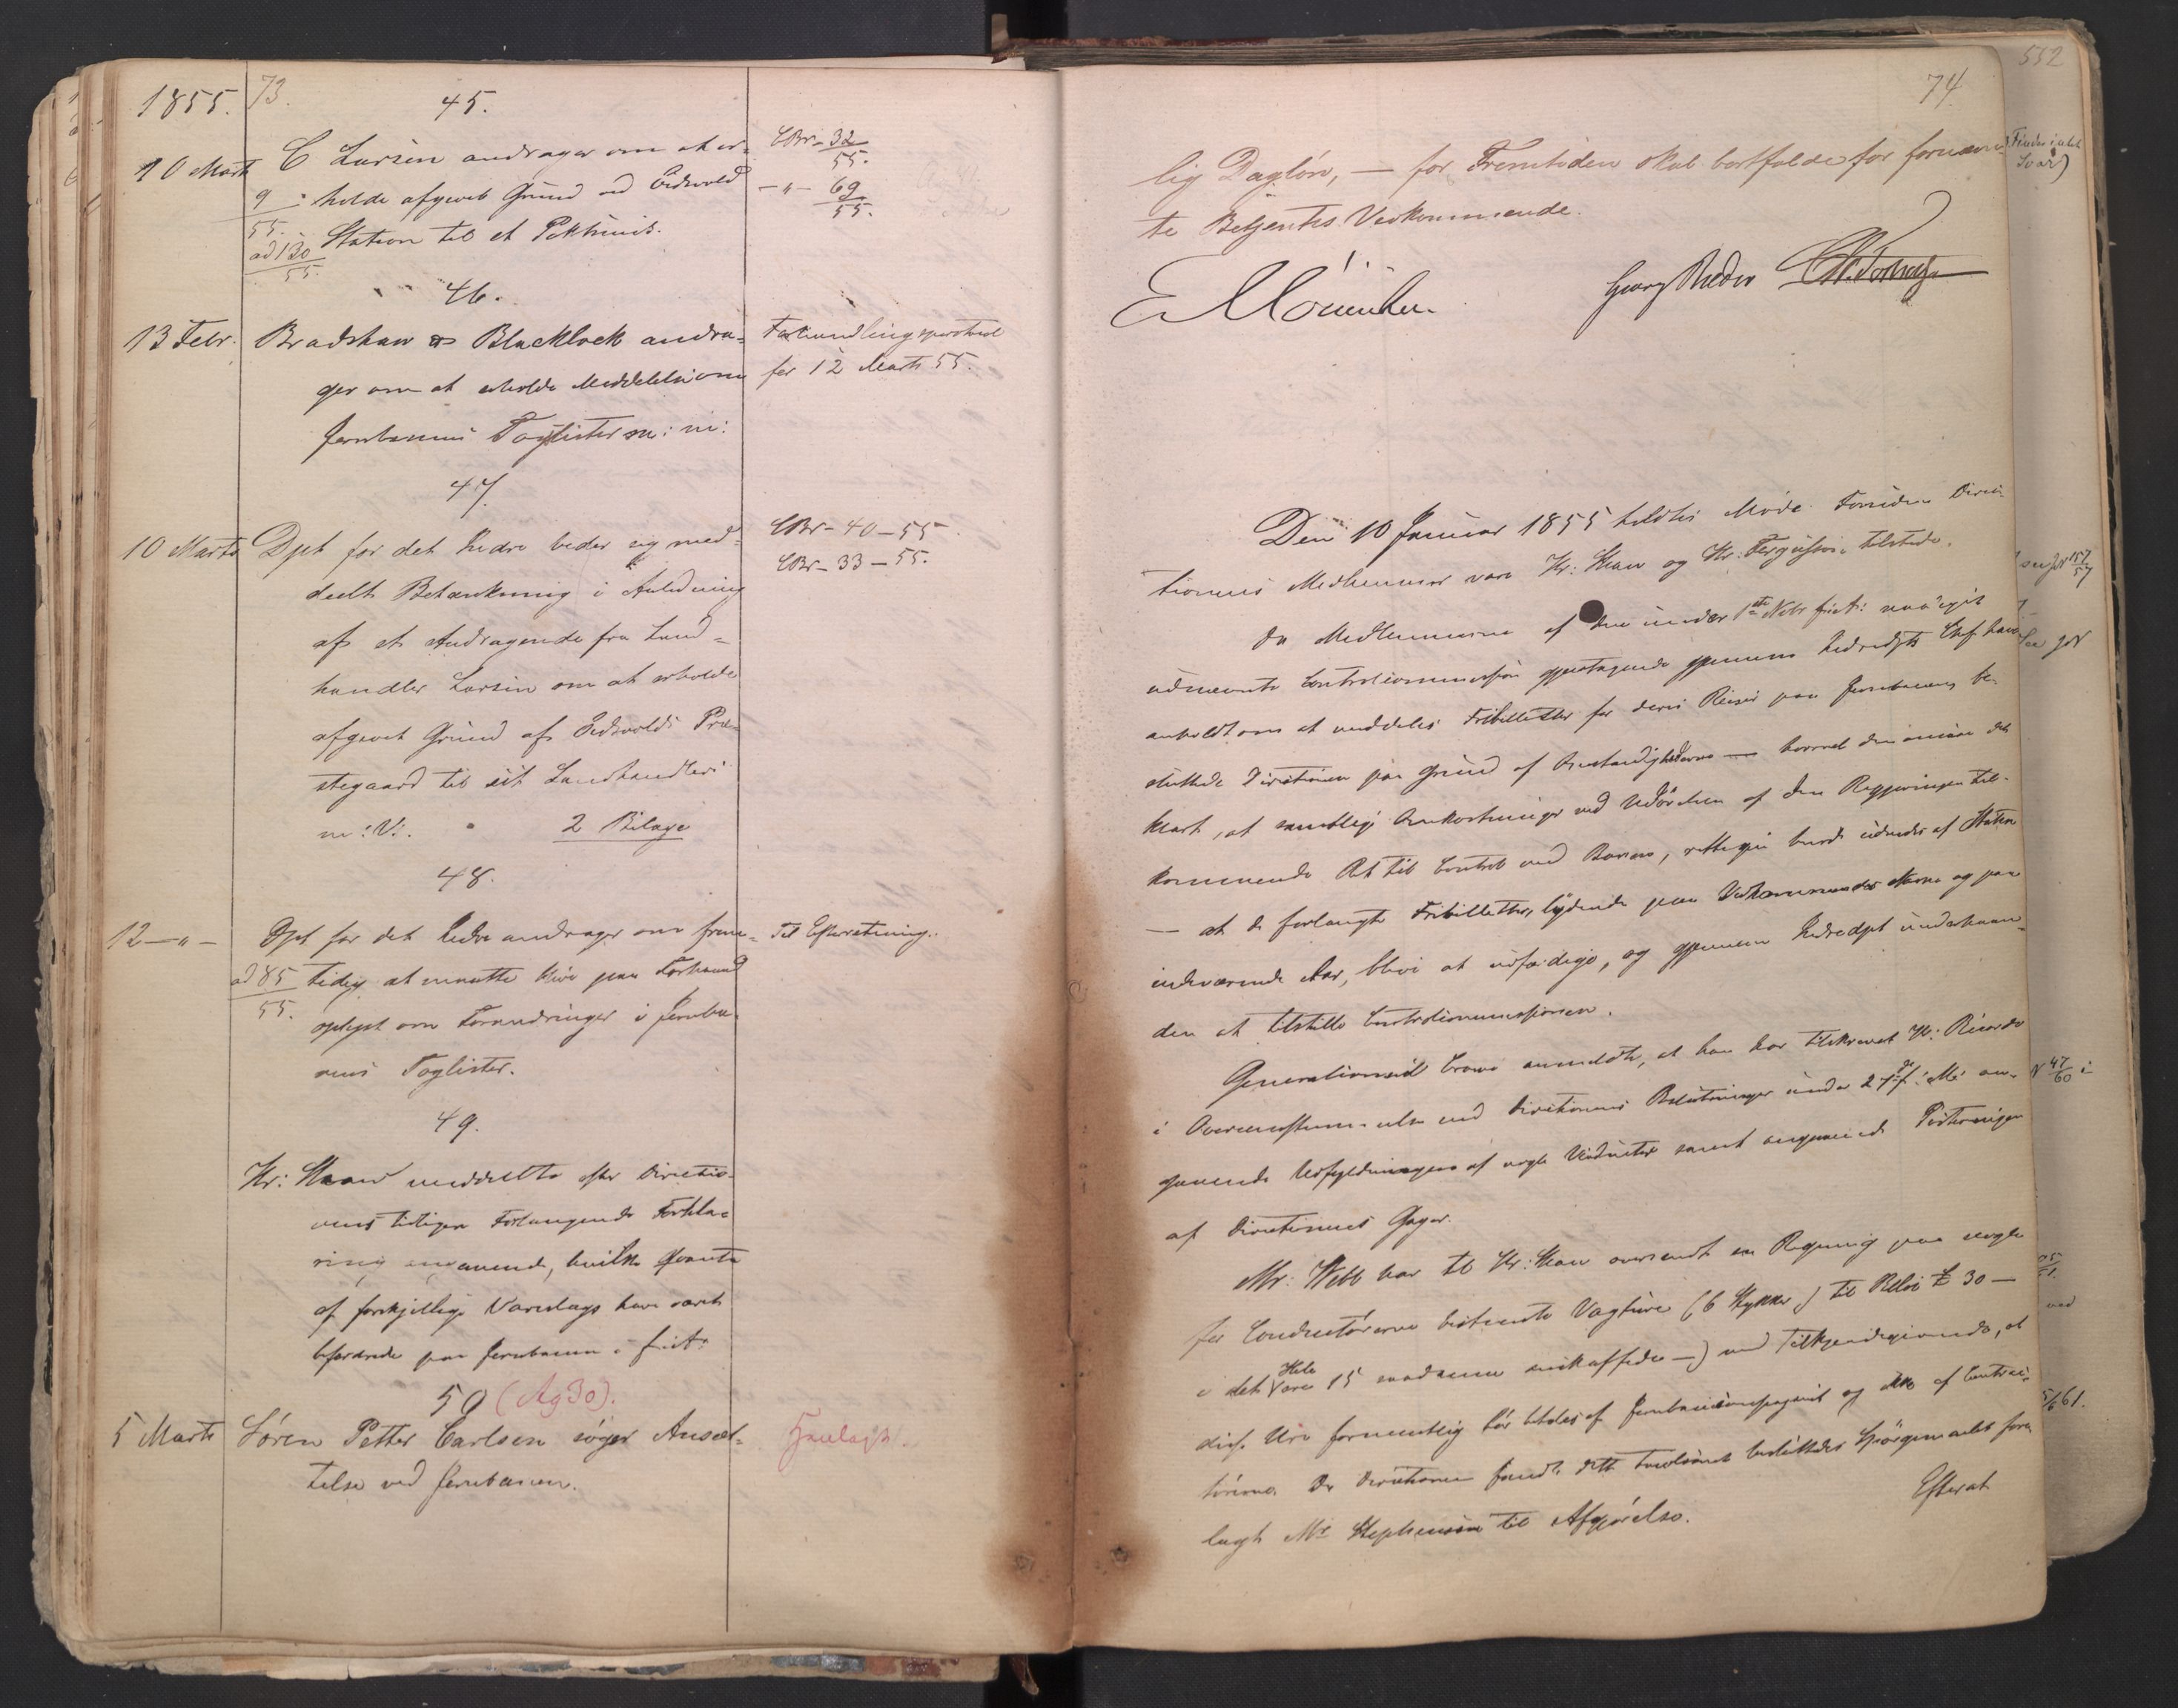 1855. 73.
45.
10 Marts C Larsen andrager om at er-
9/55. holde afgivet Grund ved Eidsvold
ad 130/55. Station til et Pakhuus.
CBr - 32/55.
- " - 69/55.
46.
13 Febr. Bradshaw & Blacklock andra-
ger om at erholde Meddelelse om
Jernbanens Toglister m: m:
Forhandlingsprotocol
for 12 Marts 55.
47.
10 Marts Dpt for det Indre beder sig med-
deelt Betænkning i Anledning
af et Andragende fra Land-
handler Larsen om at erholde
afgivet Grund af Eidsvolds Præ-
stegaard til sit Landhandleri
m: V:. 2 Bilage
CBr - 40 - 55.
CBr - 33 - 55.
48.
12 - " - Dpt for det Indre andrager om frem-
ad 85/55. tidig at maatte blive paa Forhaand
oplyst om Forandringer i Jernba-
nens Toglister.
Til Efterretning.
49.
Hr: Shaw meddeelte efter Directio-
nens tidligere Forlangende Forkla-
ring angaaende, hvilke Qvanta
af forskjellige Vareslags have været
befordrede paa Jernbanen i f: A:
50 (Ag 30).
5 Marts Søren Petter Carlsen søger Ansæt-
telse ved Jernbanen.
Henlagt.
74
lig Dagløn, — for Fremtiden skal bortfalde for fornævn-
te Betjents Vedkommende.
Georg Reder
Den 10 Januar 1855 holdtes Møde. Foruden Direc-
tionens Medlemmer vare Hr: Shaw og Hr: Fergusson tilstede.
Da Medlemmerne af den under 1ste Nvbr f: A: naadigst
udnævnte Controlcommission gjentagende gjennem Indredpts Chef have
anholdt om at meddeles Fribilletter for deres Reiser paa Jernbanen, be-
sluttede Directionen paa Grund af Omstændighederne — hvorvel den ansaae det
klart, at samtlige Omkostninger ved Udøvelsen af den Regjeringen til-
kommende Ret til Control med Banen, rettelig burde udredes af Staten
— at de forlangte Fribilletter, lydende paa Vedkommendes Navne og paa
indeværende Aar, blive at udfærdige, og gjennem Indredpt underhaan-
den at tilstille Controlcommissionen.
Generalconsul Crowe anmeldte, at han har tilskrevet Hr: Ricardo
i Overeensstemmelse med Directionens Beslutninger under 27de f: M: an-
gaaende Udfyldningen af nogle Viaducter samt angaaende
af Directionens Gager.
Mr: Webb har til Hr: Shaw oversendt en Regning paa nogle
for Conducteurerne bestemte Vagtuhre (6 Stykker) til Beløb £ 30 —
i det Hele vare 15 saadanne anskaffede —) med Tilkjendegivende, at
disse Uhre formentlig bør betales af Jernbanecompagniet og ikke af Contrac-
törerne. Da Directionen fandt dette tvivlsomt besluttedes Spørgsmaalet fore-
lagt Mr Stephenson til Afgjørelse.
Efterat
552
47/60
61.